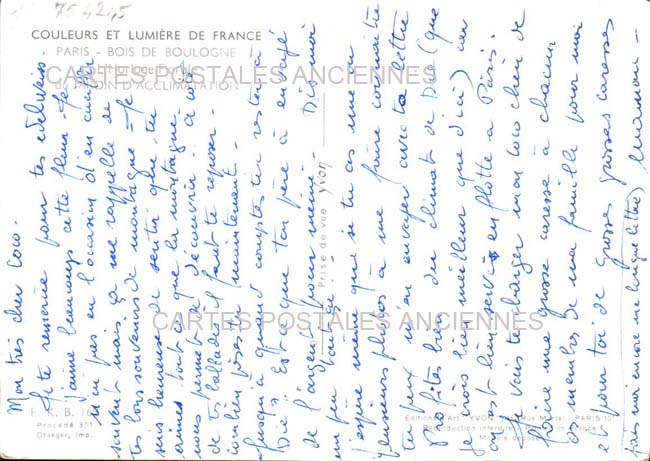 75 42,5
COULEURS ET LUMIÈRE DE FRANCE
PARIS - BOIS DE BOULOGNE
L'horloge
du JARDIN D'ACCLIMATATION
CARTES POSTALES ANCIENNES
CARTES POSTALES ANCIENNES
Mon très cher Coco.
Je te remercie pour tes edelweiss.
J'aime beaucoup cette fleur. Je
n'en pas eu l'occasion d'en cueillir
souvent mais ça me rappelle de
très bons souvenirs de montagne. Je
suis heureuse de sentir que tu
aimes tout ce que la montagne
nous permet de découvrir. à
de tes ballades il faut te reposer.
combien pèses tu maintenant.
Jusqu'à quand comptes tu rester à
Die? Est ce que ton père a envoyé
de l'argent pour mémé. Dis moi
un peu tout ça.
J'espère mémé que si tu as une ou
plusieurs photos à me faire connaître
tu peux m'en envoyer avec ta lettre
Profites bien du climat de Die (que
je crois bien meilleur que d'ici) car
on est bien servi en flotte à Paris.
Je vais te charger mon coco chéri de
faire une grosse caresse à chacun
des membres de ma famille pour moi
et pour toi de grosses grosses caresses
Maman
(fais moi encore une longue lettre)
Prise de vue yvon
E. K. B. 16
Procédé 301
Draeger, imp.
Editions d'Art "YVON", Rue Martel - PARIS 10
Reproduction interdite in France
Modèle déposé